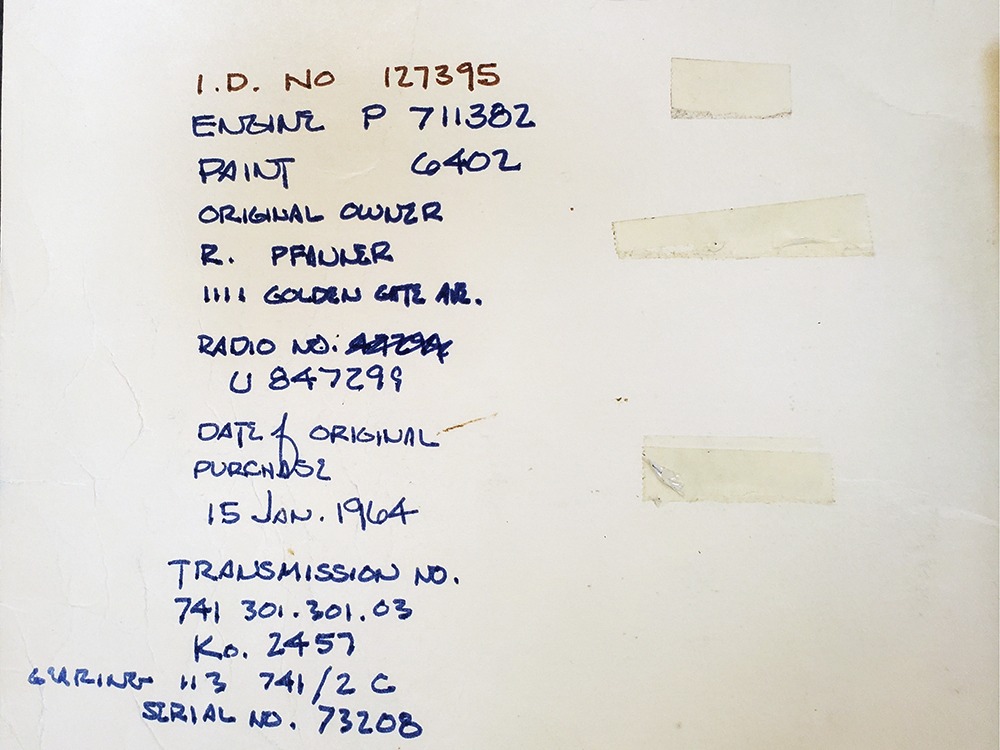 I.D. NO 127395
ENGINE P 711382
PAINT 6402
ORIGINAL OWNER
R. PFANNER
1111 GOLDEN GATE AVE.
RADIO NO:
U 847299
DATE of ORIGINAL
PURCHASE
15 JAN. 1964
TRANSMISSION NO.
741 301.301.03
Ko. 2457
GEARING 113 741/2 C
SERIAL NO. 73208